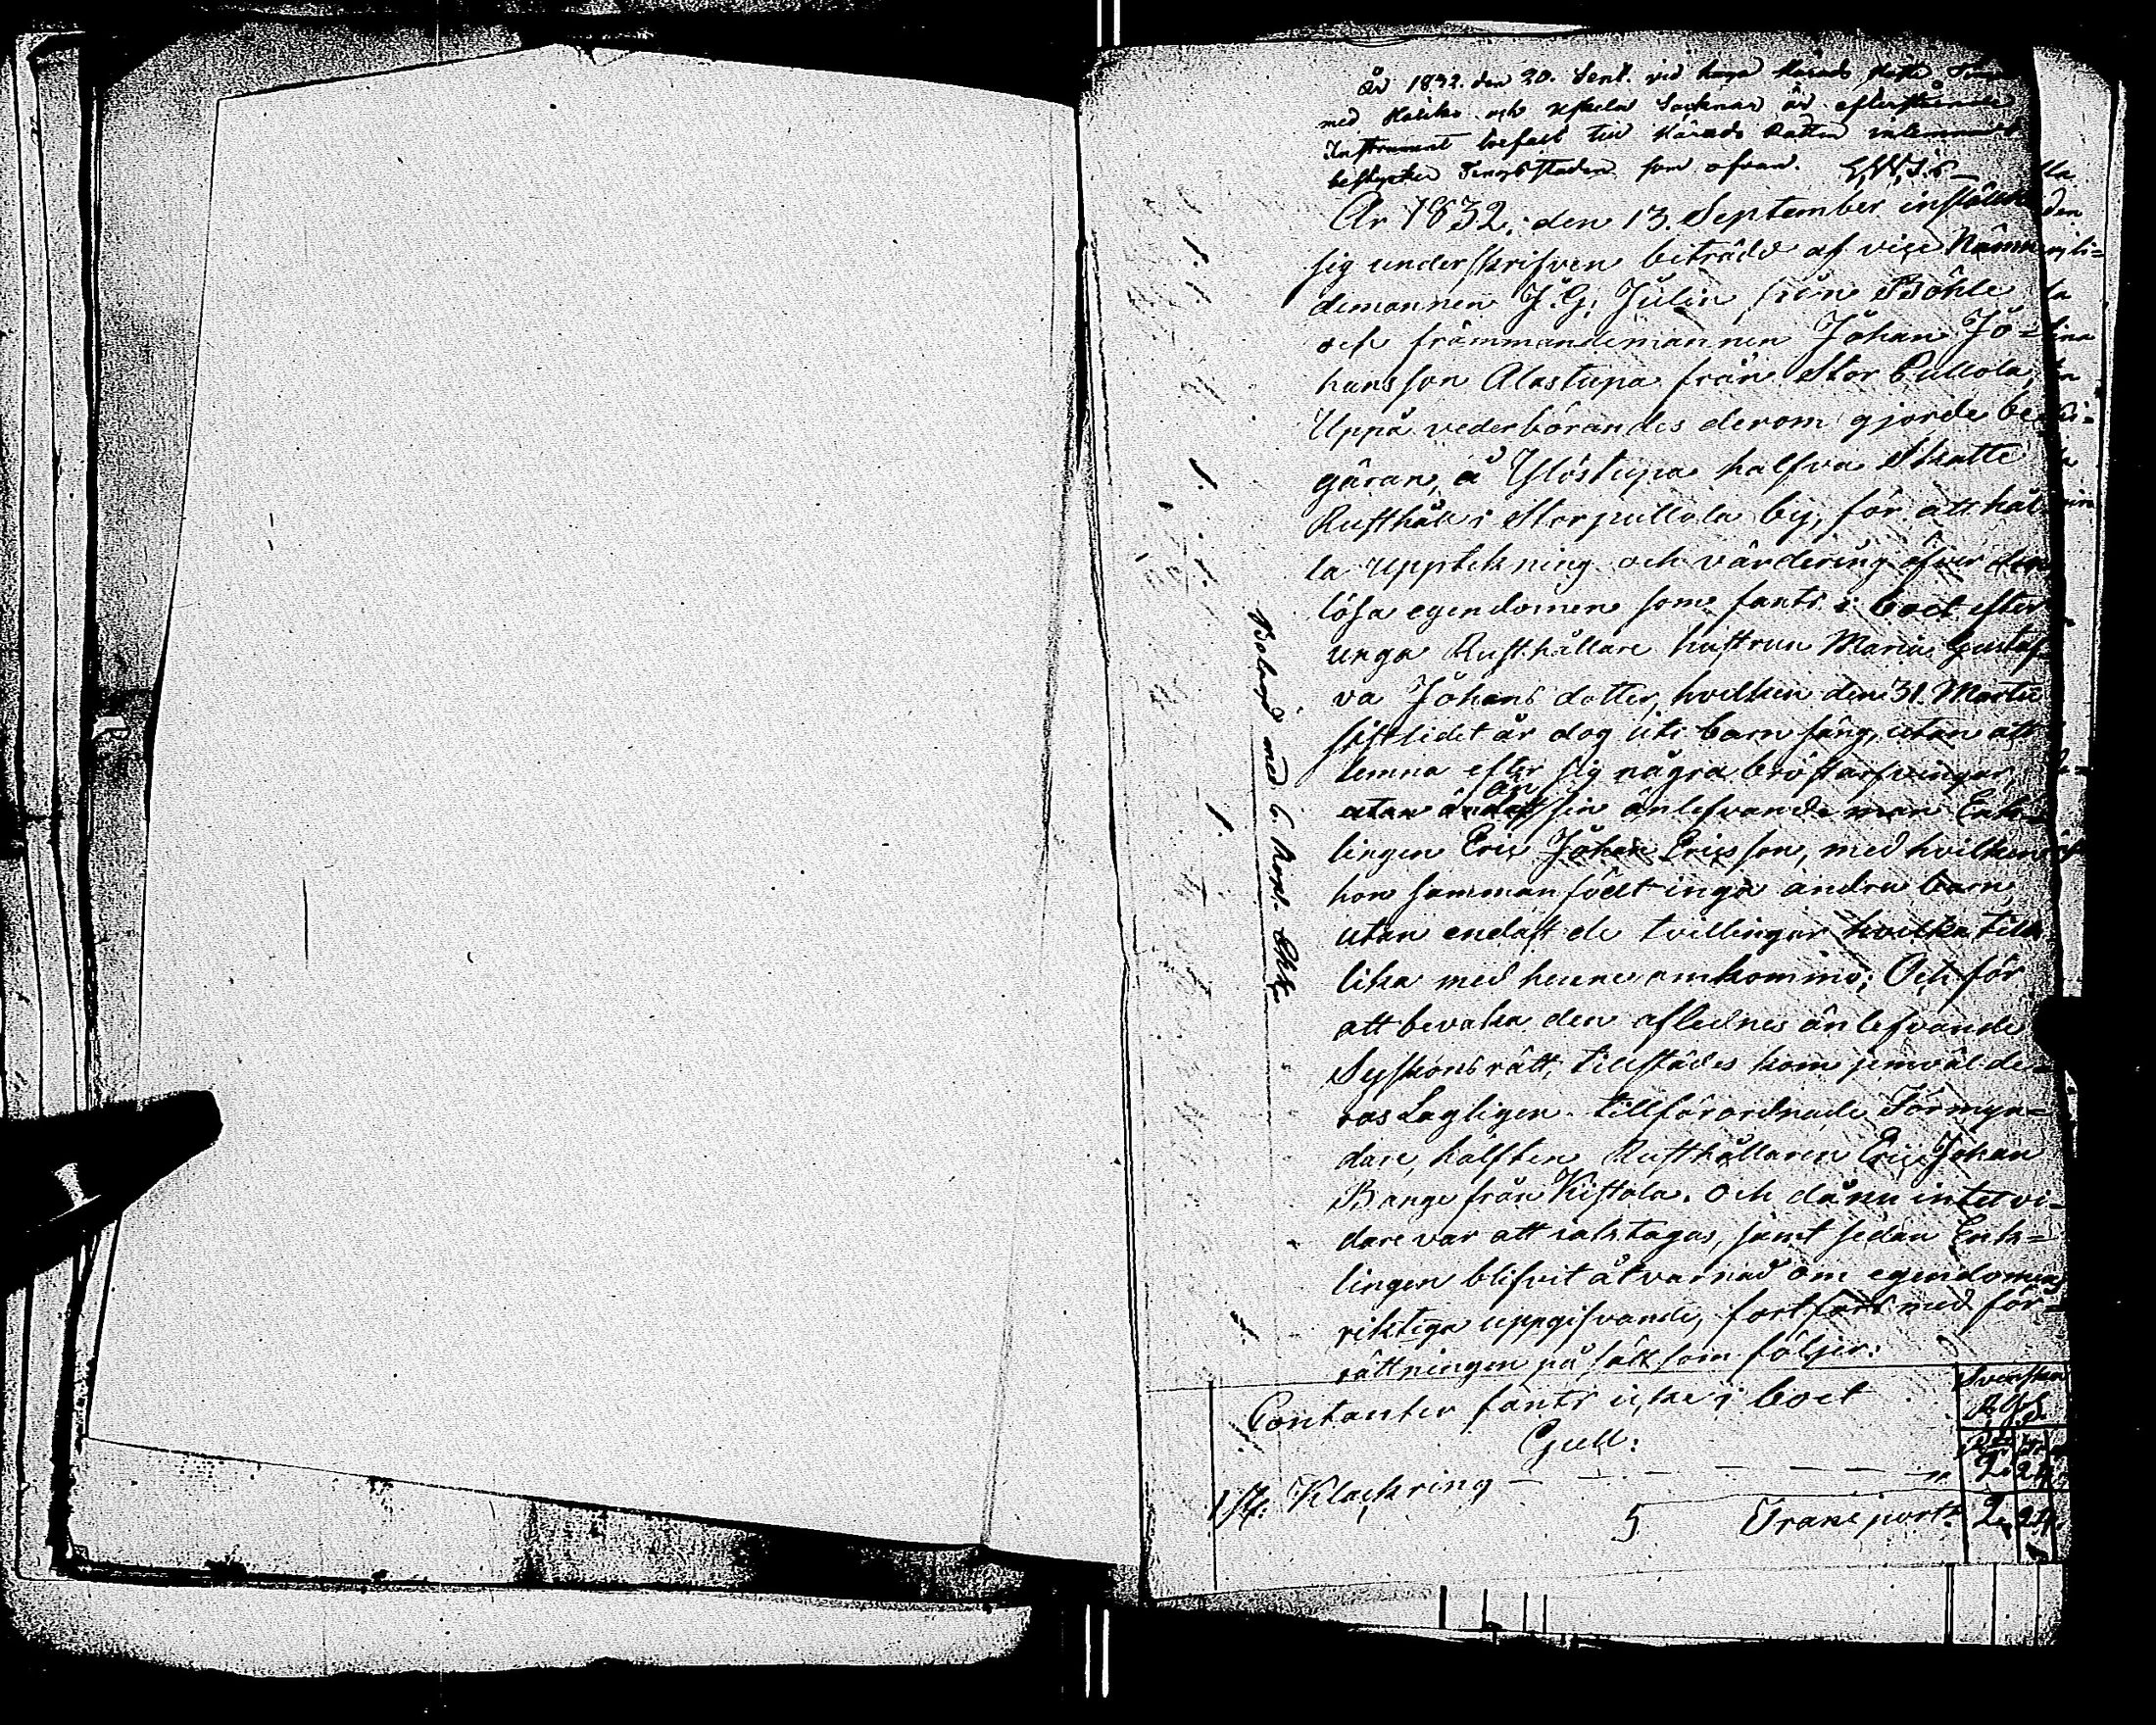 År 1832. den 20. Sept. vid laga Härads Rätte Ting
med Haliko och Uskela Socknar är efterstående
Instrument befalt till Härads Rätten inlemnat
Tingsstaden som ofvan.
År 1832, den 13. September instälte
sig underskrifven biträdd af vice Nämn
demannen J. G. Julin från Böhle
och främmandemannen Johan Jo-
hansson Alastupa från Stor Pullola,
Uppå vederbörandes derom gjorde be
gäran, å Ylöstupa halfva Skatte
Rusthåll i Storpullola by, för att hål
la Upptekning och värdering öfver den
lösa egendomen som fants i boet efter
unga Rusthållare hustrun Maria Gusta
va Johans dotter, hvilken den 31. Martii
sistlidet år dog uti barn säng, utan att
lemna efter sig några bröstarfvingar,
utan sin änlefvande man Enk-
lingen Eric Johan Ericsson, med hvilken
hon samman födt inga andra barn,
utan endast de tvillingar hvilka till
lika med henne omkommo; Och för
att bevaka den aflednes änlefvande
Syskons rätt, tillstädes kom jemväl de-
ras Lagligen tillförordnade Förmyn-
dare, hälften Rusthållaren Eric Johan
Bange från Kistola. Och då nu intet vi-
dare var att iakttagas, samt sedan Enk-
lingen blifvit åtvarnad om egendomens
riktiga uppgifvande, fortfors med för-
rättningen på sätt som följer:
Betalad med 6 Kop.
Contanter fants icke i boet
Svenska
R.G.S.
Gull:
1 St. Klackring - - - - - - „ 2. 24
5 Transport. 2. 24.